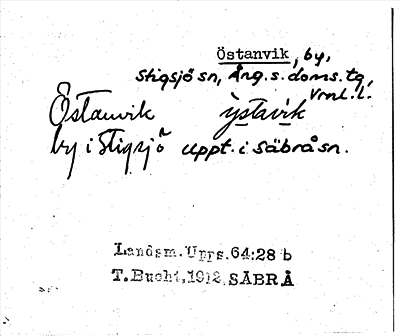 Östanvik, by,
Stigsjö sn, Ång. s. doms. tg,
Vrnl. l.
Östanvik ỳstavik
by i Stigsjö uppt. i Säbrå sn.
Landsm. Upps. 64:28 b
T. Bucht, 1912. SÄBRÅ